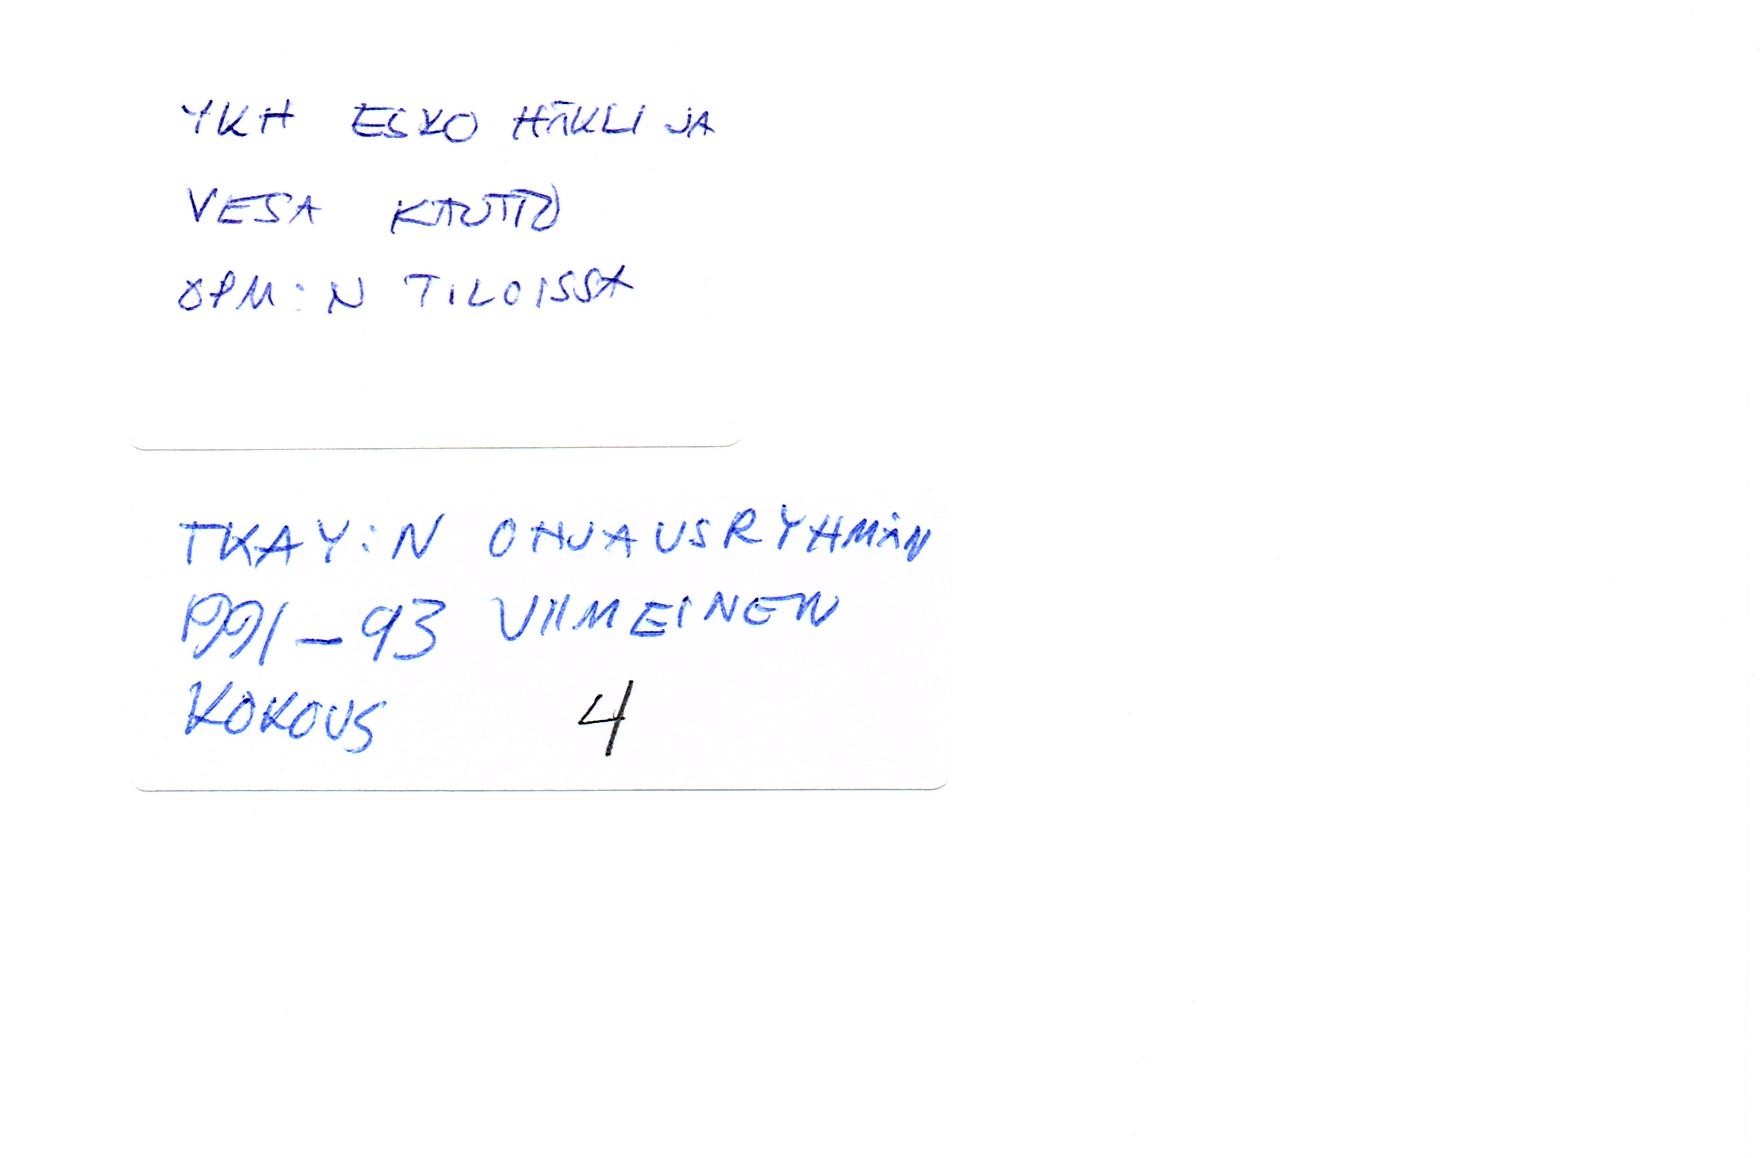 YKH ESKO HÄKLI JA
VESA KAUTTO
OPM:N TILOISSA
TKAY:N OHJAUSRYHMÄN
1991-93 VIIMEINEN
KOKOUS 4